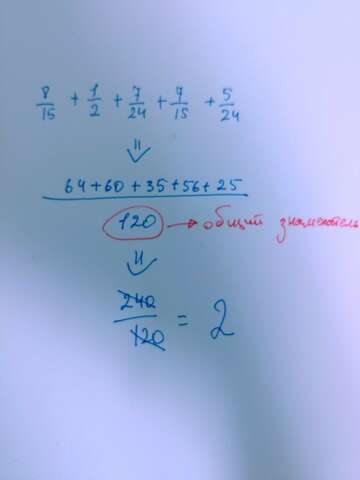 8/15 + 1/2 + 7/24 + 7/15 + 5/24
⇓
64+60+35+56+25
120 → общий знаменатель
⇓
240/120 = 2